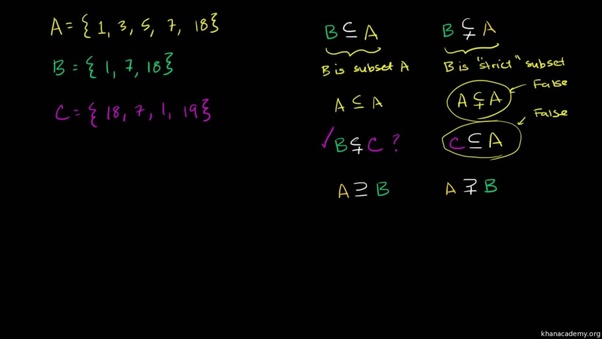 A = { 1, 3, 5, 7, 18 }
B = { 1, 7, 18 }
C = { 18, 7, 1, 19 }
B ⊆ A
B is subset A
A ⊆ A
B ⊊ C ?
A ⊇ B
B ⊊ A
B is "strict" subset
A ⊊ A False
C ⊆ A False
A ⊋ B
khanacademy.org